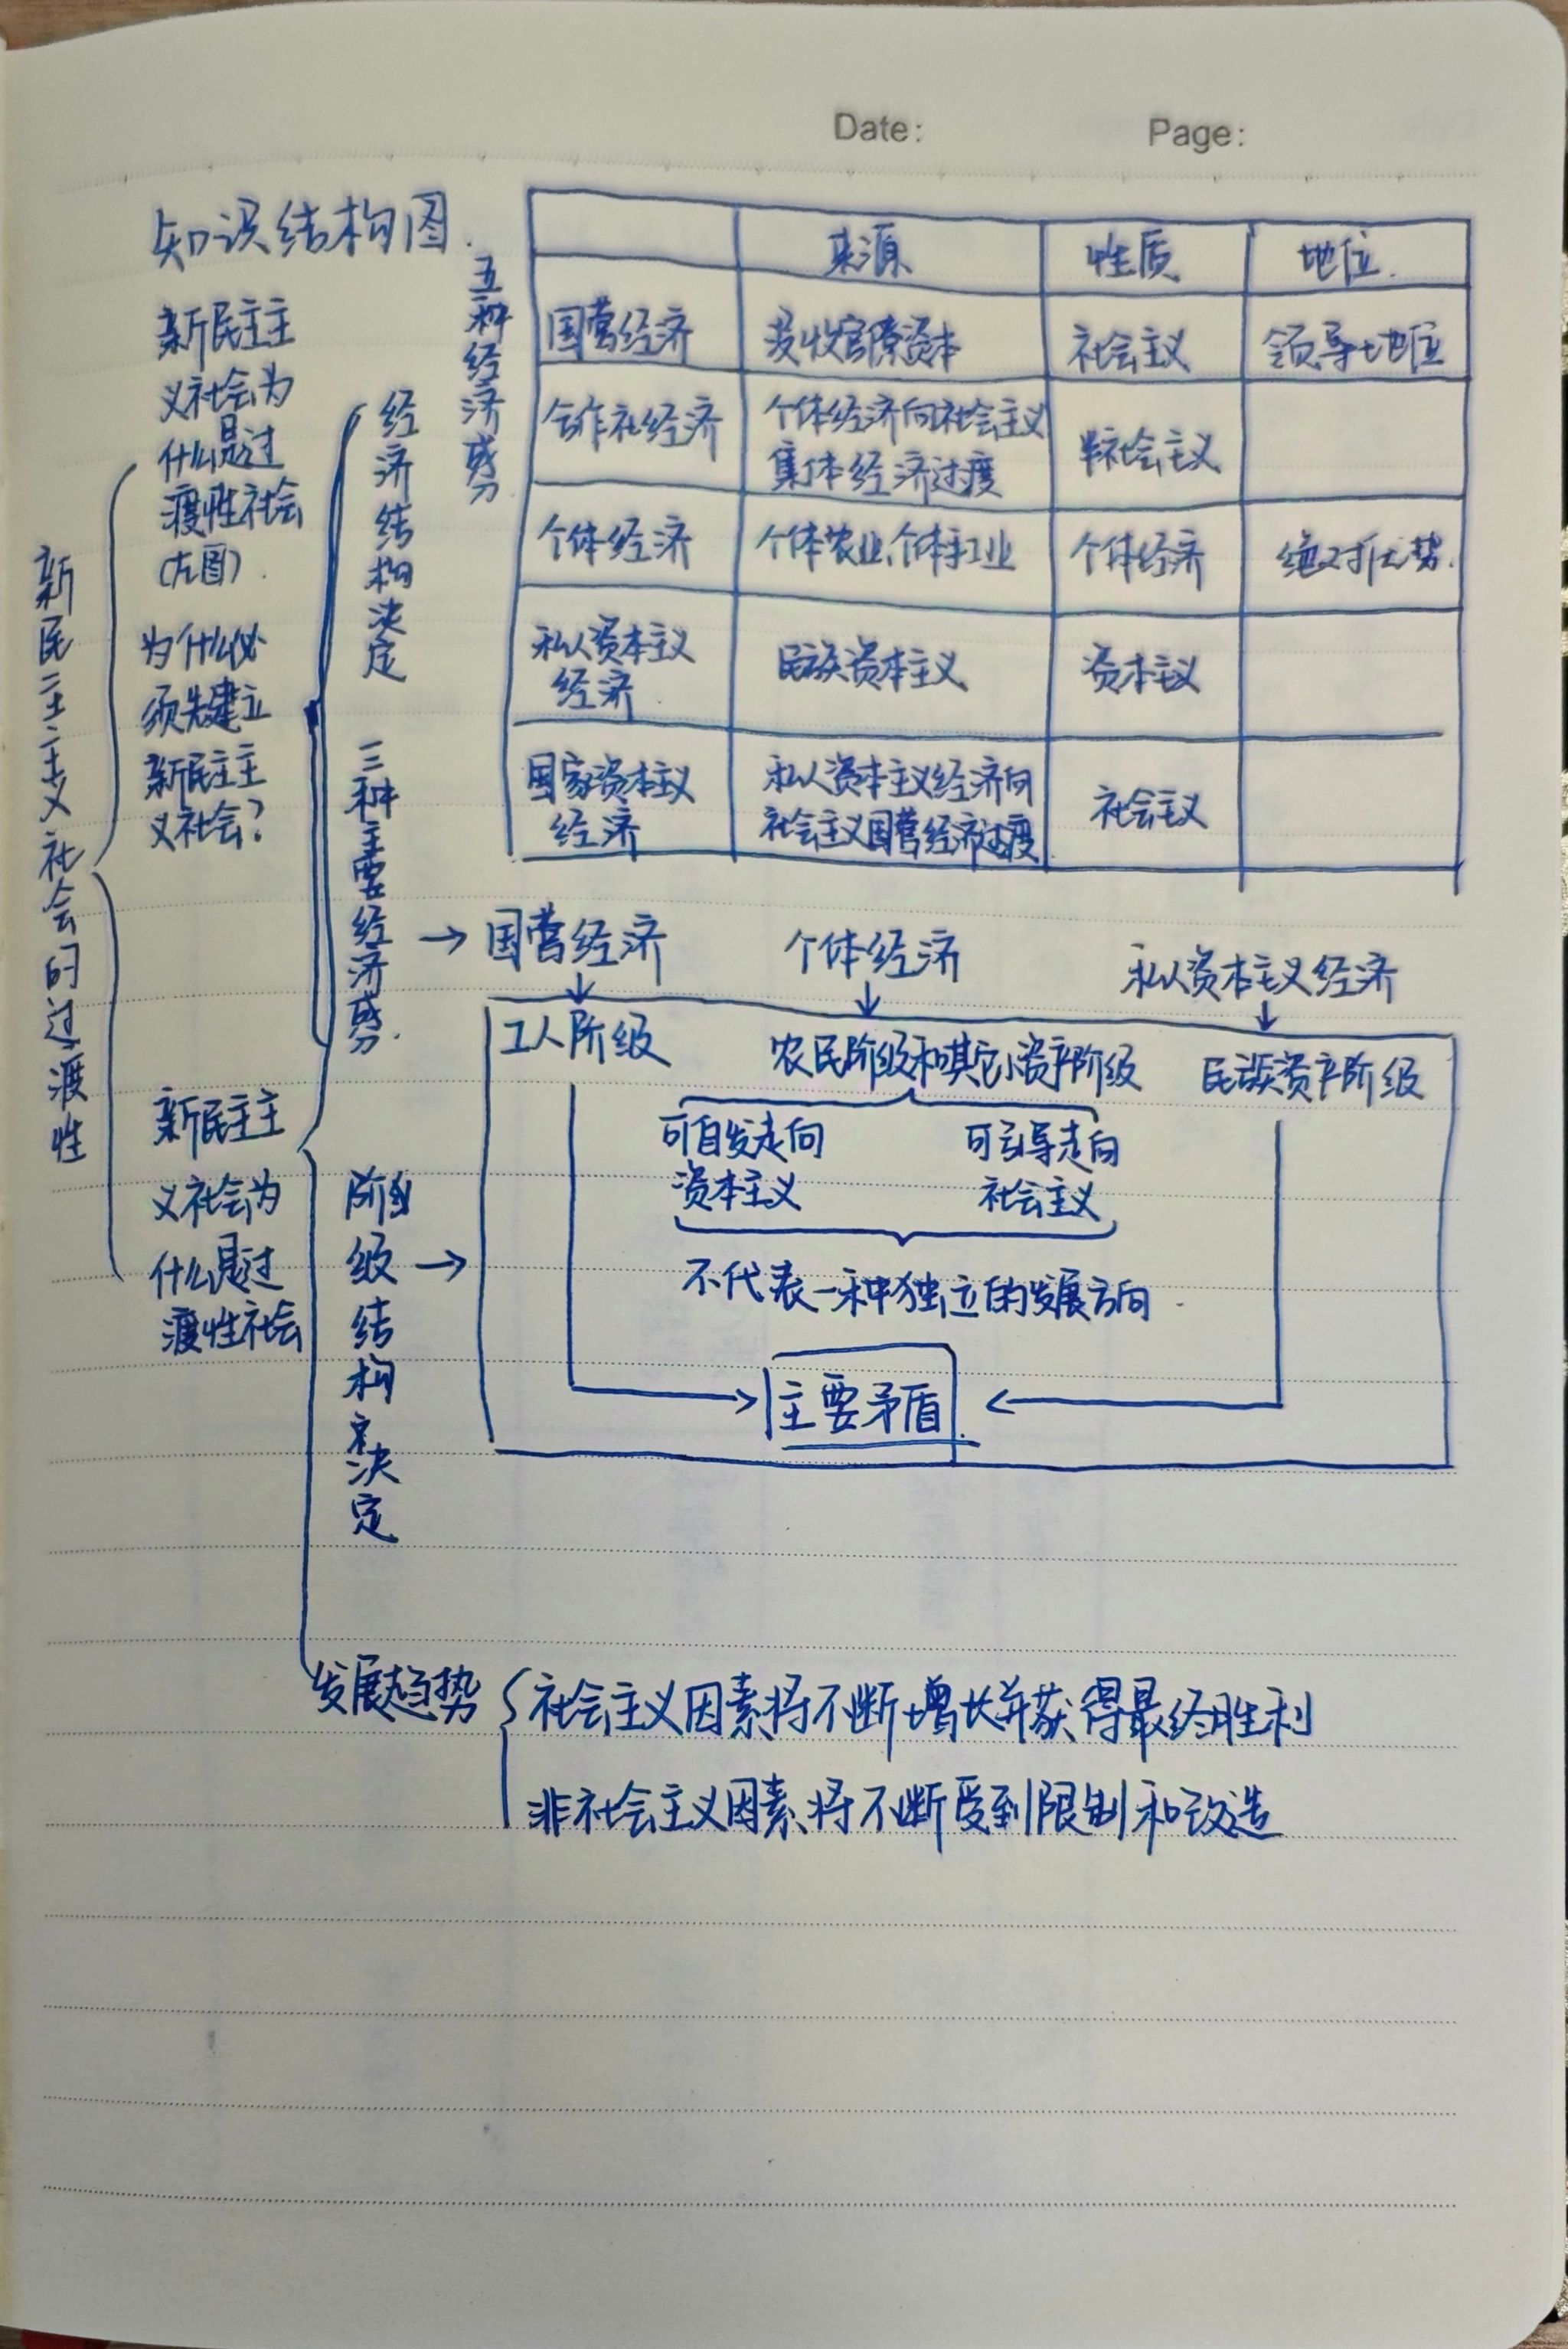 Date: Page:
知识结构图.
新民主主义社会的过渡性
新民主主
义社会为
什么是过
渡性社会
(左图).
为什么必
须先建立
新民主主
义社会?
新民主主
义社会为
什么是过
渡性社会
经济结构决定
五种经济成分
来源 性质 地位.
国营经济 没收官僚资本 社会主义 领导地位
合作社经济 个体经济向社会主义 半社会主义
集体经济过度
个体经济 个体农业、个体手工业 个体经济 绝对优势.
私人资本主义 民族资本主义 资本主义
经济.
国家资本主义 私人资本主义经济向 社会主义
经济 社会主义国营经济过渡
三种主要经济成分.
→ 国营经济 个体经济 私人资本主义经济
工人阶级 农民阶级和其它小资产阶级 民族资产阶级
可自发走向 可引导走向
资本主义 社会主义
不代表一种独立的发展方向.
主要矛盾
阶级结构决定
→
发展趋势
社会主义因素将不断增长并获得最终胜利
非社会主义因素将不断受到限制和改造